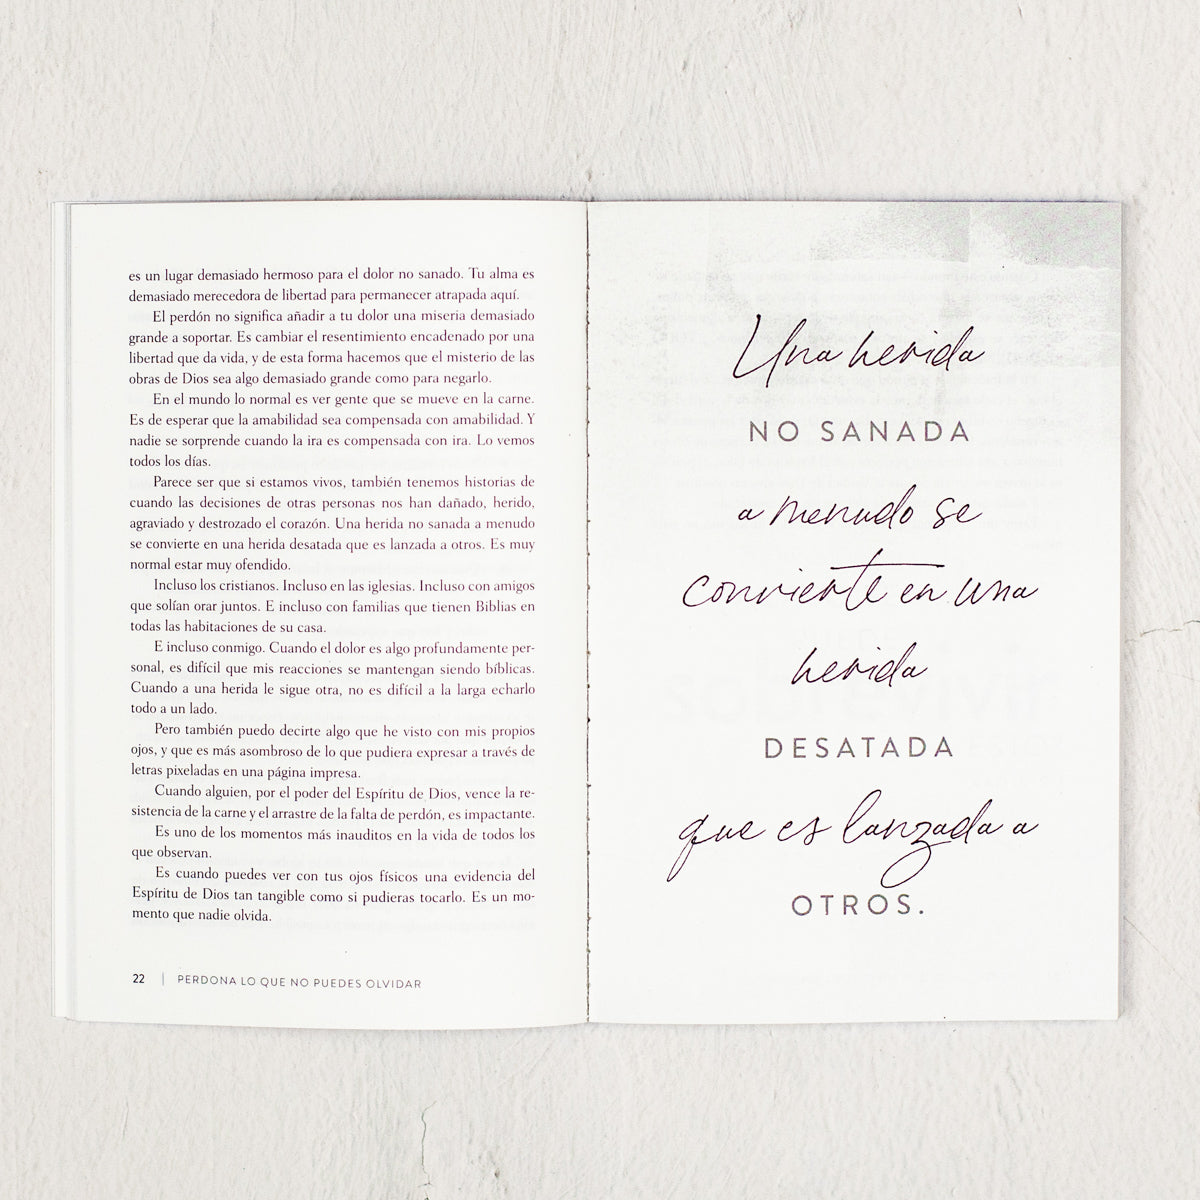 es un lugar demasiado hermoso para el dolor no sanado. Tu alma es
demasiado merecedora de libertad para permanecer atrapada aquí.
El perdón no significa añadir a tu dolor una miseria demasiado
grande a soportar. Es cambiar el resentimiento encadenado por una
libertad que da vida, y de esta forma hacemos que el misterio de las
obras de Dios sea algo demasiado grande como para negarlo.
En el mundo lo normal es ver gente que se mueve en la carne.
Es de esperar que la amabilidad sea compensada con amabilidad. Y
nadie se sorprende cuando la ira es compensada con ira. Lo vemos
todos los días.
Parece ser que si estamos vivos, también tenemos historias de
cuando las decisiones de otras personas nos han dañado, herido,
agraviado y destrozado el corazón. Una herida no sanada a menudo
se convierte en una herida desatada que es lanzada a otros. Es muy
normal estar muy ofendido.
Incluso los cristianos. Incluso en las iglesias. Incluso con amigos
que solían orar juntos. E incluso con familias que tienen Biblias en
todas las habitaciones de su casa.
E incluso conmigo. Cuando el dolor es algo profundamente per-
sonal, es difícil que mis reacciones se mantengan siendo bíblicas.
Cuando a una herida le sigue otra, no es difícil a la larga echarlo
todo a un lado.
Pero también puedo decirte algo que he visto con mis propios
ojos, y que es más asombroso de lo que pudiera expresar a través de
letras pixeladas en una página impresa.
Cuando alguien, por el poder del Espíritu de Dios, vence la re-
sistencia de la carne y el arrastre de la falta de perdón, es impactante.
Es uno de los momentos más inauditos en la vida de todos los
que observan.
Es cuando puedes ver con tus ojos físicos una evidencia del
Espíritu de Dios tan tangible como si pudieras tocarlo. Es un mo-
mento que nadie olvida.
22 | PERDONA LO QUE NO PUEDES OLVIDAR
Una herida
NO SANADA
a menudo se
convierte en una
herida
DESATADA
que es lanzada a
OTROS.